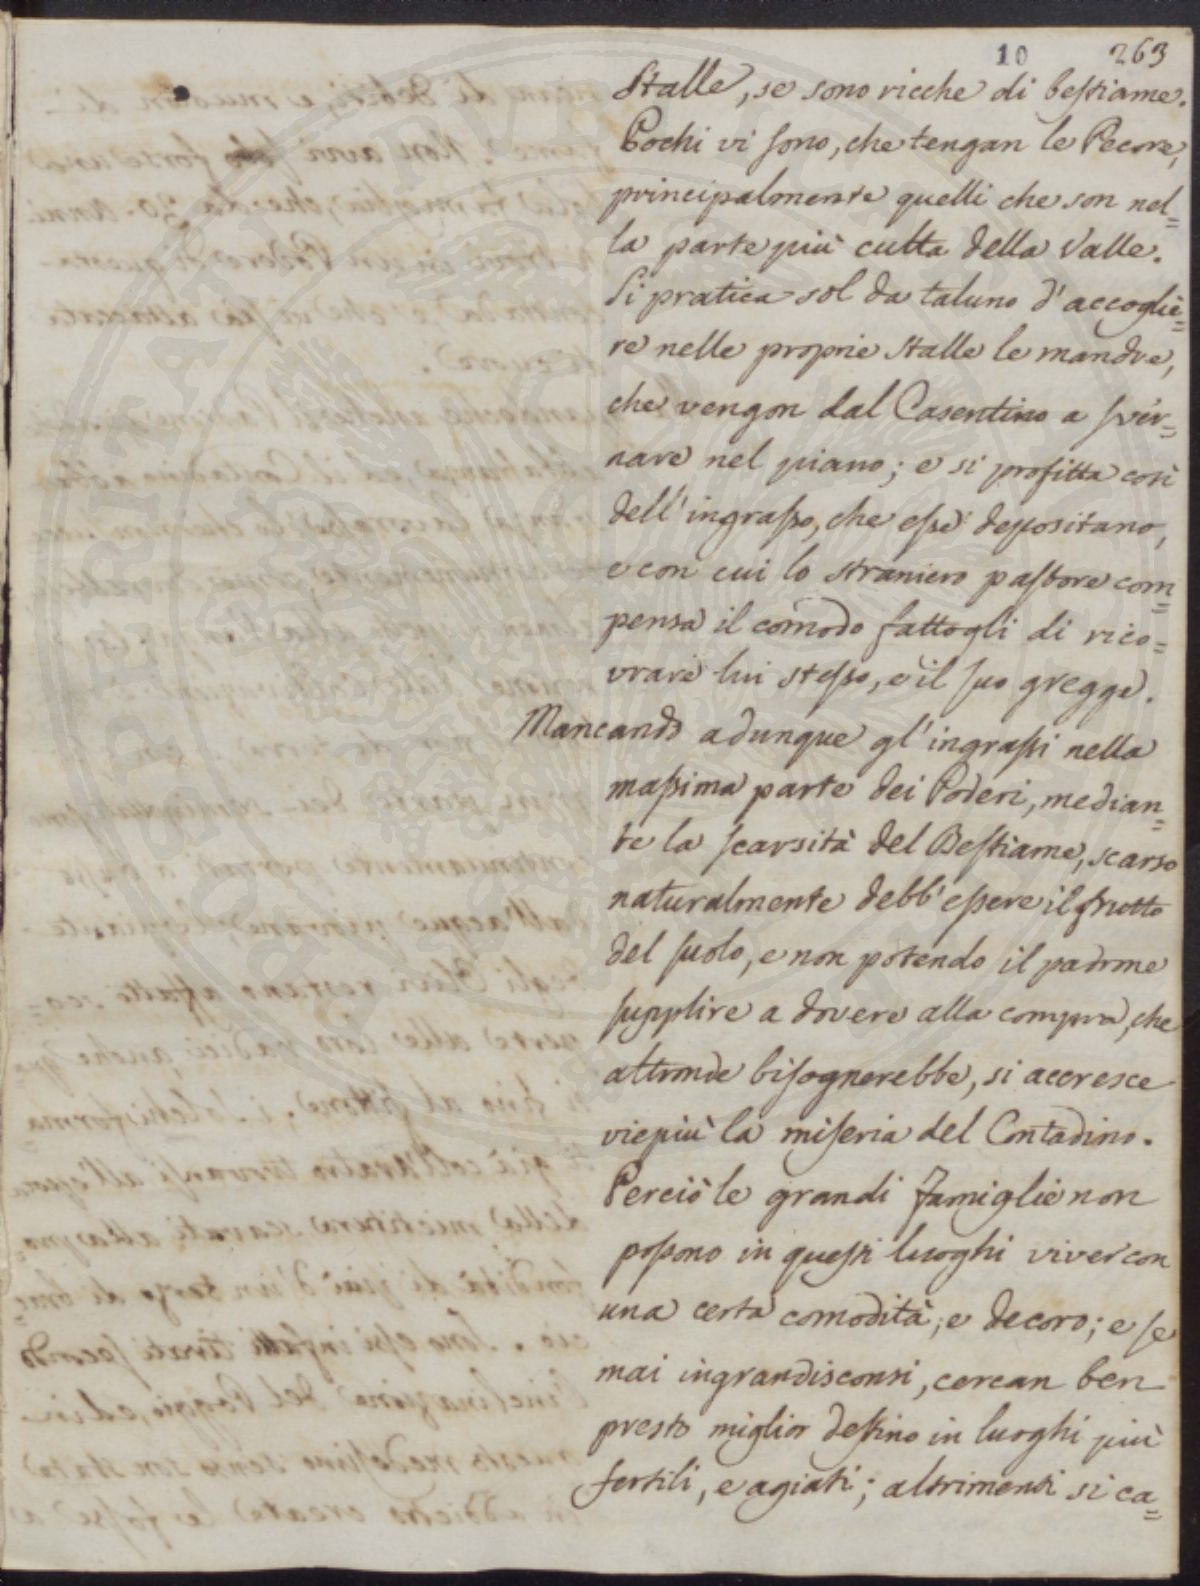 10 263
Stalle, se sono ricche di bestiame.
Pochi vi sono, che tengan le Pecore,
principalmente quelli che son nel=
la parte più culta della Valle.
Si pratica sol da taluno d'accoglie=
re nelle proprie stalle le mandre,
che vengon dal Casentino a sver=
nare nel piano; e si profitta così
dell'ingrasso, che esse depositano,
e con cui lo straniero pastore com=
pensa il comodo fattogli di rico=
vrare lui stesso, e il suo gregge.
Mancando adunque gl'ingrassi nella
massima parte dei Poderi, median=
te la scarsità del Bestiame, scarso
naturalmente debb'essere il frutto
del suolo, e non potendo il padrone
supplire a dovere alla compra, che
altronde bisognerebbe, si accresce
viepiù la miseria del Contadino.
Perciò le grandi famiglie non
possono in questi luoghi viver con
una certa comodità, e decoro; e se
mai ingrandisconsi, cercan ben
presto miglior destino in luoghi più
fertili, e agiati; altrimenti si ca=